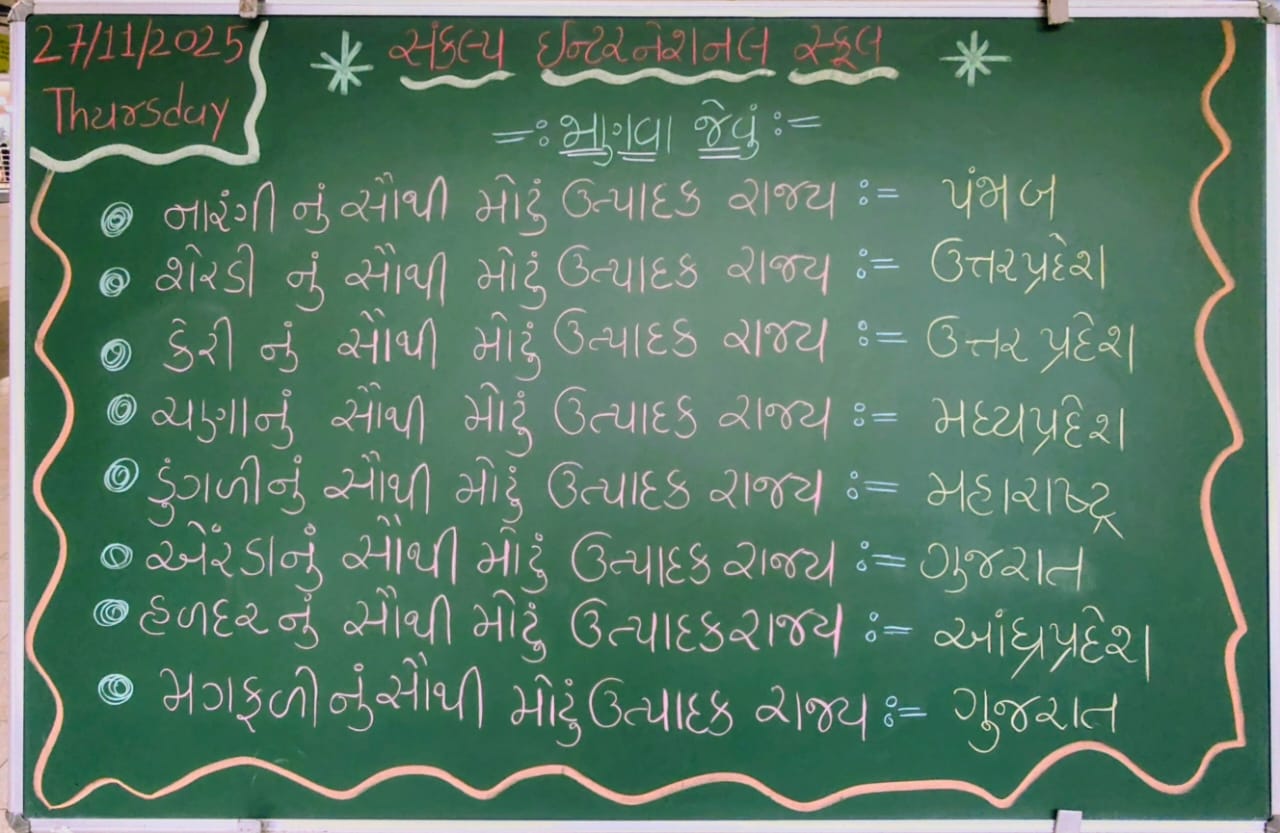 27/11/2025
Thursday
સંકલ્પ ઇન્ટરનેશનલ સ્કૂલ
=: જાણવા જેવું :=
નારંગી નું સૌથી મોટું ઉત્પાદક રાજ્ય := પંજાબ
શેરડી નું સૌથી મોટું ઉત્પાદક રાજ્ય := ઉત્તરપ્રદેશ
કેરી નું સૌથી મોટું ઉત્પાદક રાજ્ય := ઉત્તર પ્રદેશ
ચણાનું સૌથી મોટું ઉત્પાદક રાજ્ય := મધ્યપ્રદેશ
ડુંગળીનું સૌથી મોટું ઉત્પાદક રાજ્ય := મહારાષ્ટ્ર
એરંડાનું સૌથી મોટું ઉત્પાદક રાજ્ય := ગુજરાત
હળદર નું સૌથી મોટું ઉત્પાદક રાજ્ય := આંધ્રપ્રદેશ
મગફળી નું સૌથી મોટું ઉત્પાદક રાજ્ય := ગુજરાત